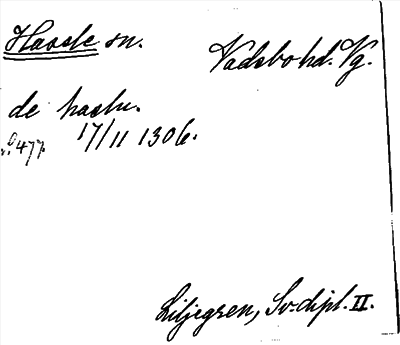 Hassle sn. Vadsbo hd. Vg.
de haslu.
17/11 1306.
nº 477.
Liljegren, Sv. dipl. II.